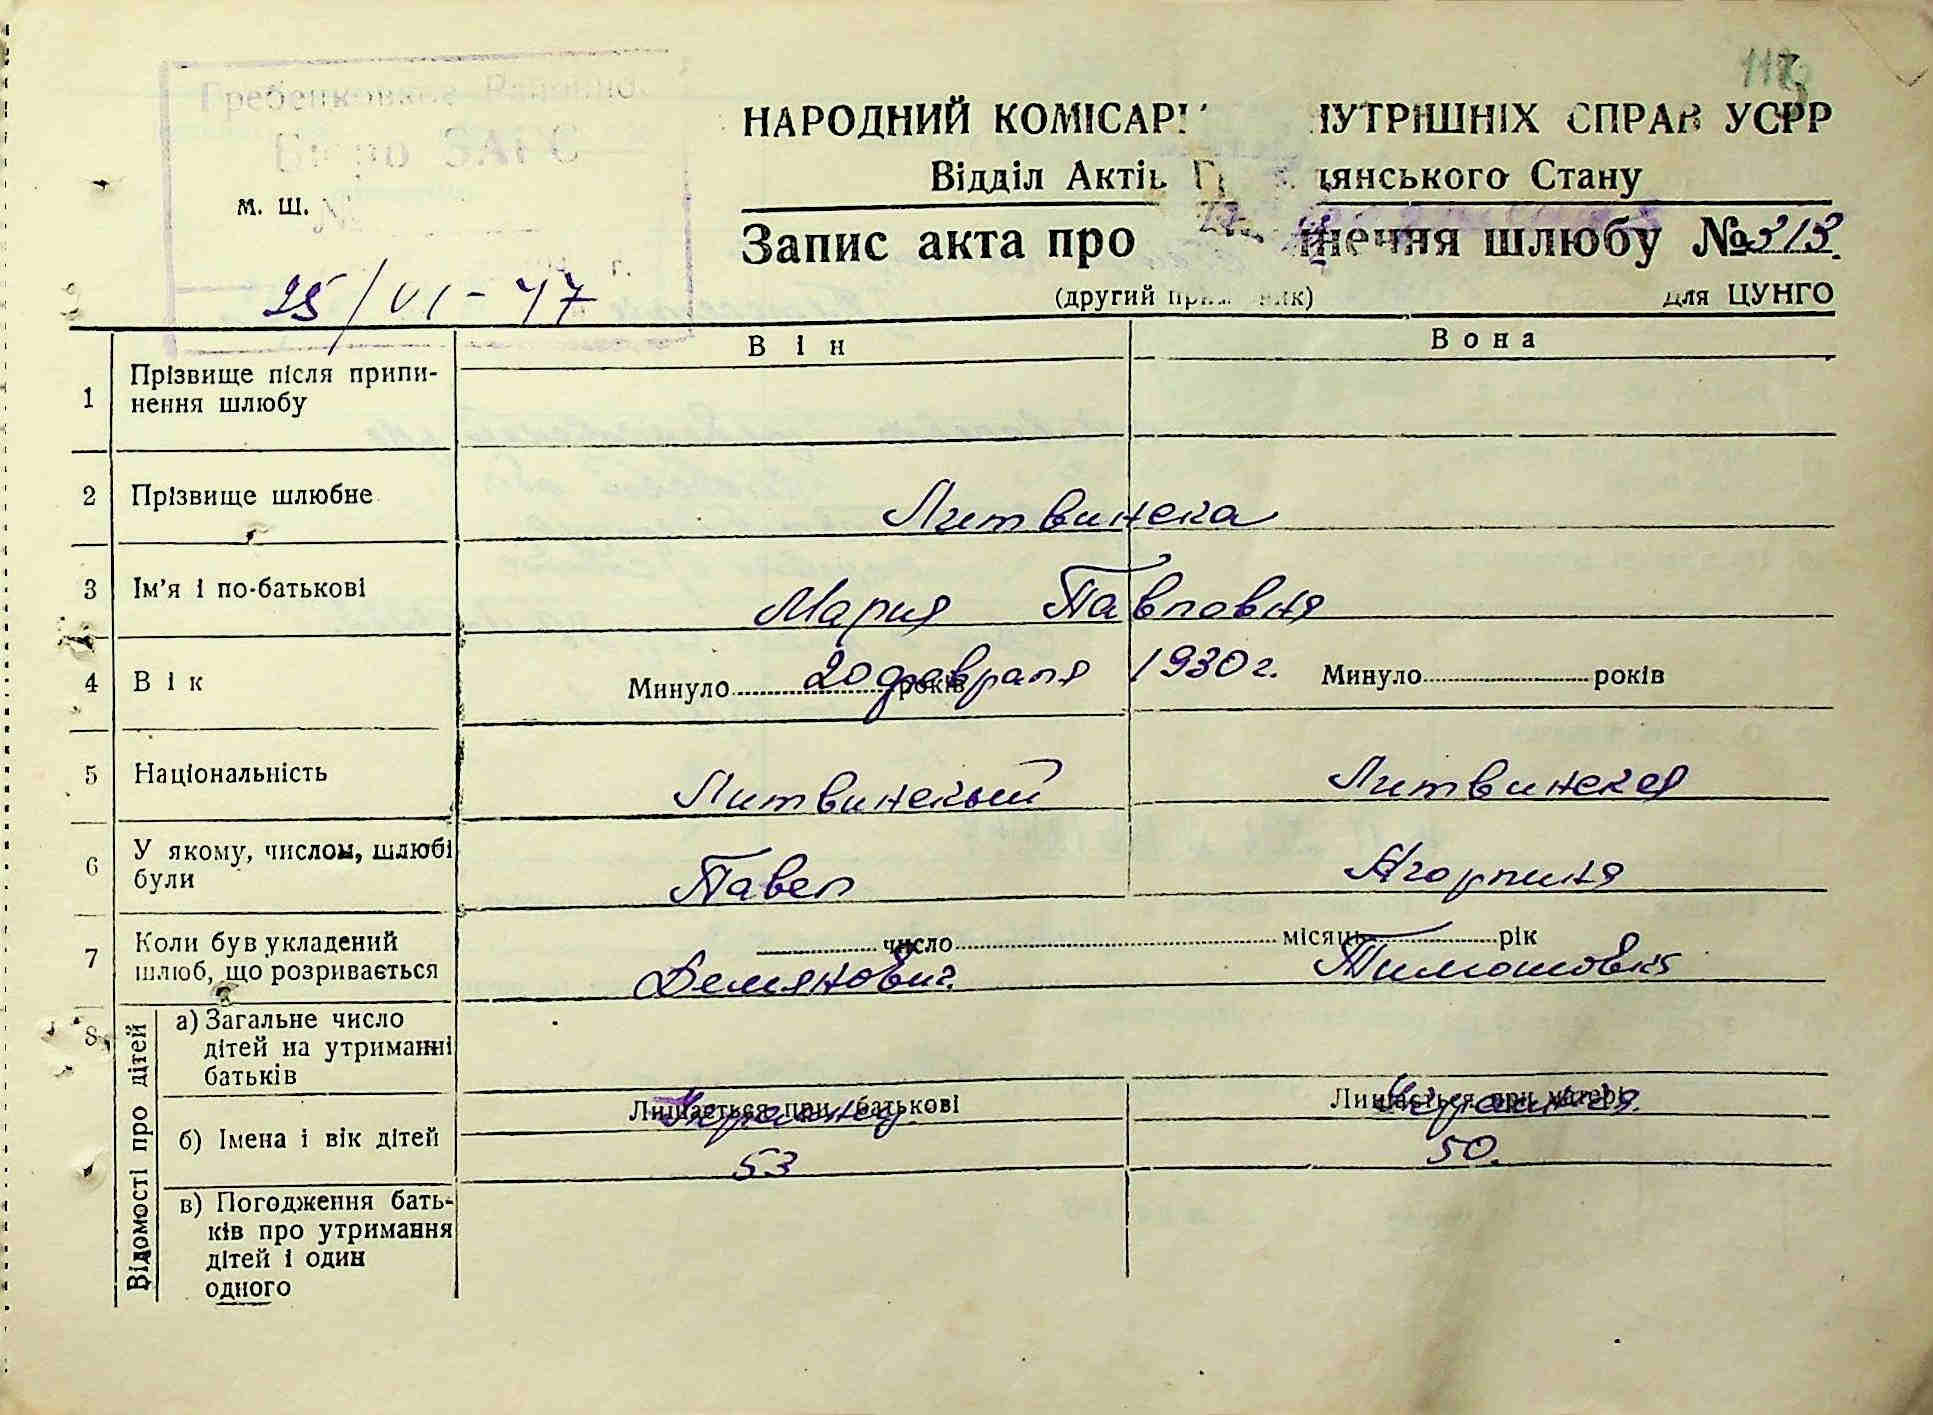 Бюро ЗАГС
м. ш.
№
г.
25/VI-47
НАРОДНИЙ КОМІСАРІ УТРІШНІХ СПРАВ УСРР
Відділ Актів Гр янського Стану
Запис акта про инення шлюбу № 313
(другий прим ик) для ЦУНГО
Він Вона
1 Прізвище після припи-
нення шлюбу
2 Прізвище шлюбне Литвинска
3 Ім'я і по-батькові Мария Павловня
4 Вік Минуло 20 февраля 1930 г. років Минуло років
5 Національність Литвинский Литвинская
6 У якому, числом, шлюбі
були Павел Агорпиня
7 Коли був укладений
шлюб, що розривається число місяць рік
Демянович. Тимошовня
8 Відомості про дітей
а) Загальне число
дітей на утриманні
батьків
Лишається при батькові Лишається при матері
б) Імена і вік дітей
53 50.
в) Погодження бать-
ків про утримання
дітей і один
одного